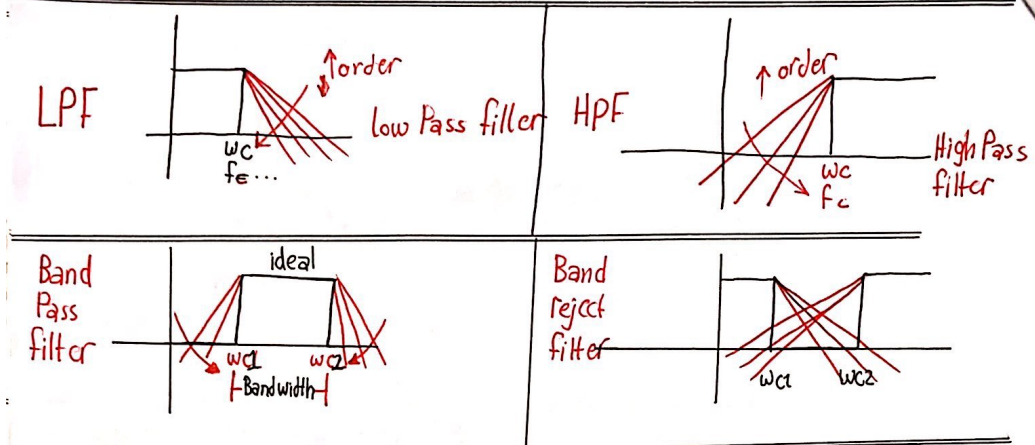 LPF
↑order
low Pass filler
wc
fc...
HPF
↑ order
High Pass
filter
wc
fc
Band
Pass
filter
ideal
wc1
wc2
Bandwidth
Band
reject
filter
wc1
wc2